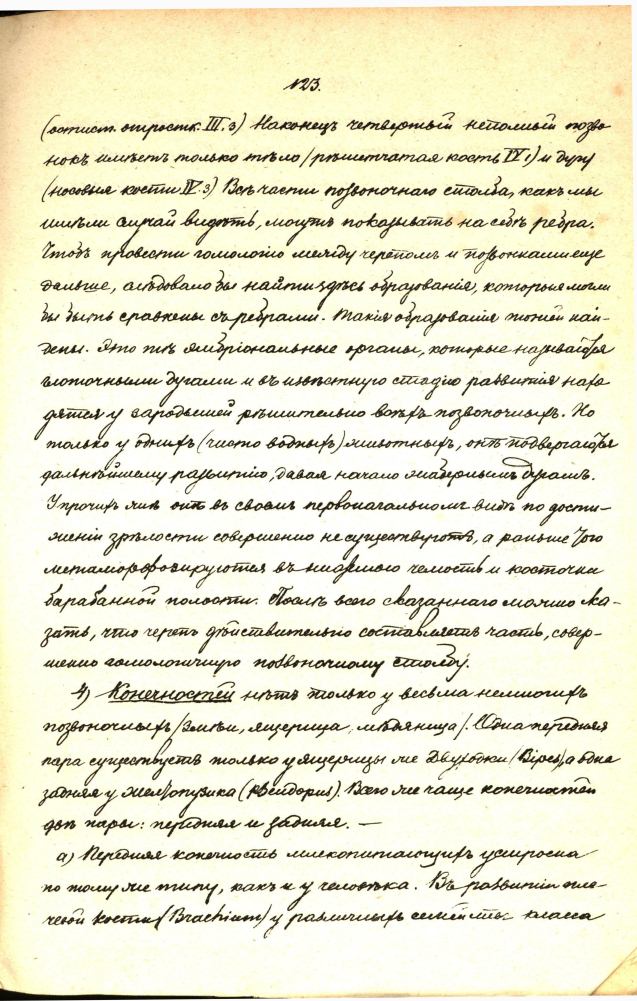 123.
(остист. отростк. III. 3) Наконецъ четвертый неполный позво
нокъ имѣетъ только тѣло (рѣшетчатая кость IV. 1) и дугу
(носовыя кости IV. 3) Всѣ части позвоночнаго столба, какъ мы
имѣли случай видѣть, могутъ показывать на себѣ ребра.
Чтобъ провести гомологію между черепомъ и позвонками еще
дальше, слѣдовало бы найти здѣсь образованія, которыя могли
бы быть сравнены съ ребрами. Такія образованія тоже най-
дены. Это тѣ эмбріональные органы, которые называются
глоточными дугами и въ извѣстную стадію развитія нахо
дятся у зародышей рѣшительно всѣхъ позвоночныхъ. Но
только у однихъ (чисто водныхъ) животныхъ, онѣ подвергаются
дальнѣйшему развитію, давая начало жабернымъ дугамъ.
У прочихъ же онѣ въ своемъ первоначальномъ видѣ по дости-
женіи зрѣлости совершенно не существуютъ, а раньше того
метаморфозируются въ нижнюю челюсть и косточки
барабанной полости. Послѣ всего сказаннаго можно ска-
зать, что черепъ дѣйствительно составляетъ часть, совер-
шенно гомологичную позвоночному столбу.
4) Конечностей нѣтъ только у весьма немногихъ
позвоночныхъ (змѣи, ящерица, мѣдяница). Одна передняя
пара существуетъ только у ящерицы же Двуходки (Bipes), а одна
задняя у желтопузика (Псейдопус). Всего же чаще конечностей
двѣ пары: передняя и задняя. —
а) Передняя конечность млекопитающихъ устроена
по тому же типу, какъ и у человѣка. Въ развитіи пле-
чевой кости (Brachium) у различныхъ семействъ класса